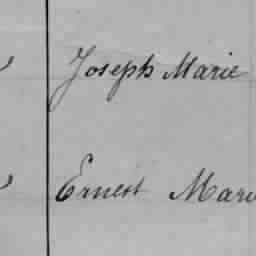 Joseph Marie
Ernest Mari